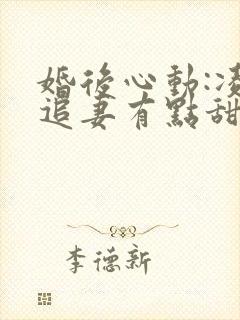 婚後心動:凌
追妻有點甜
李德新